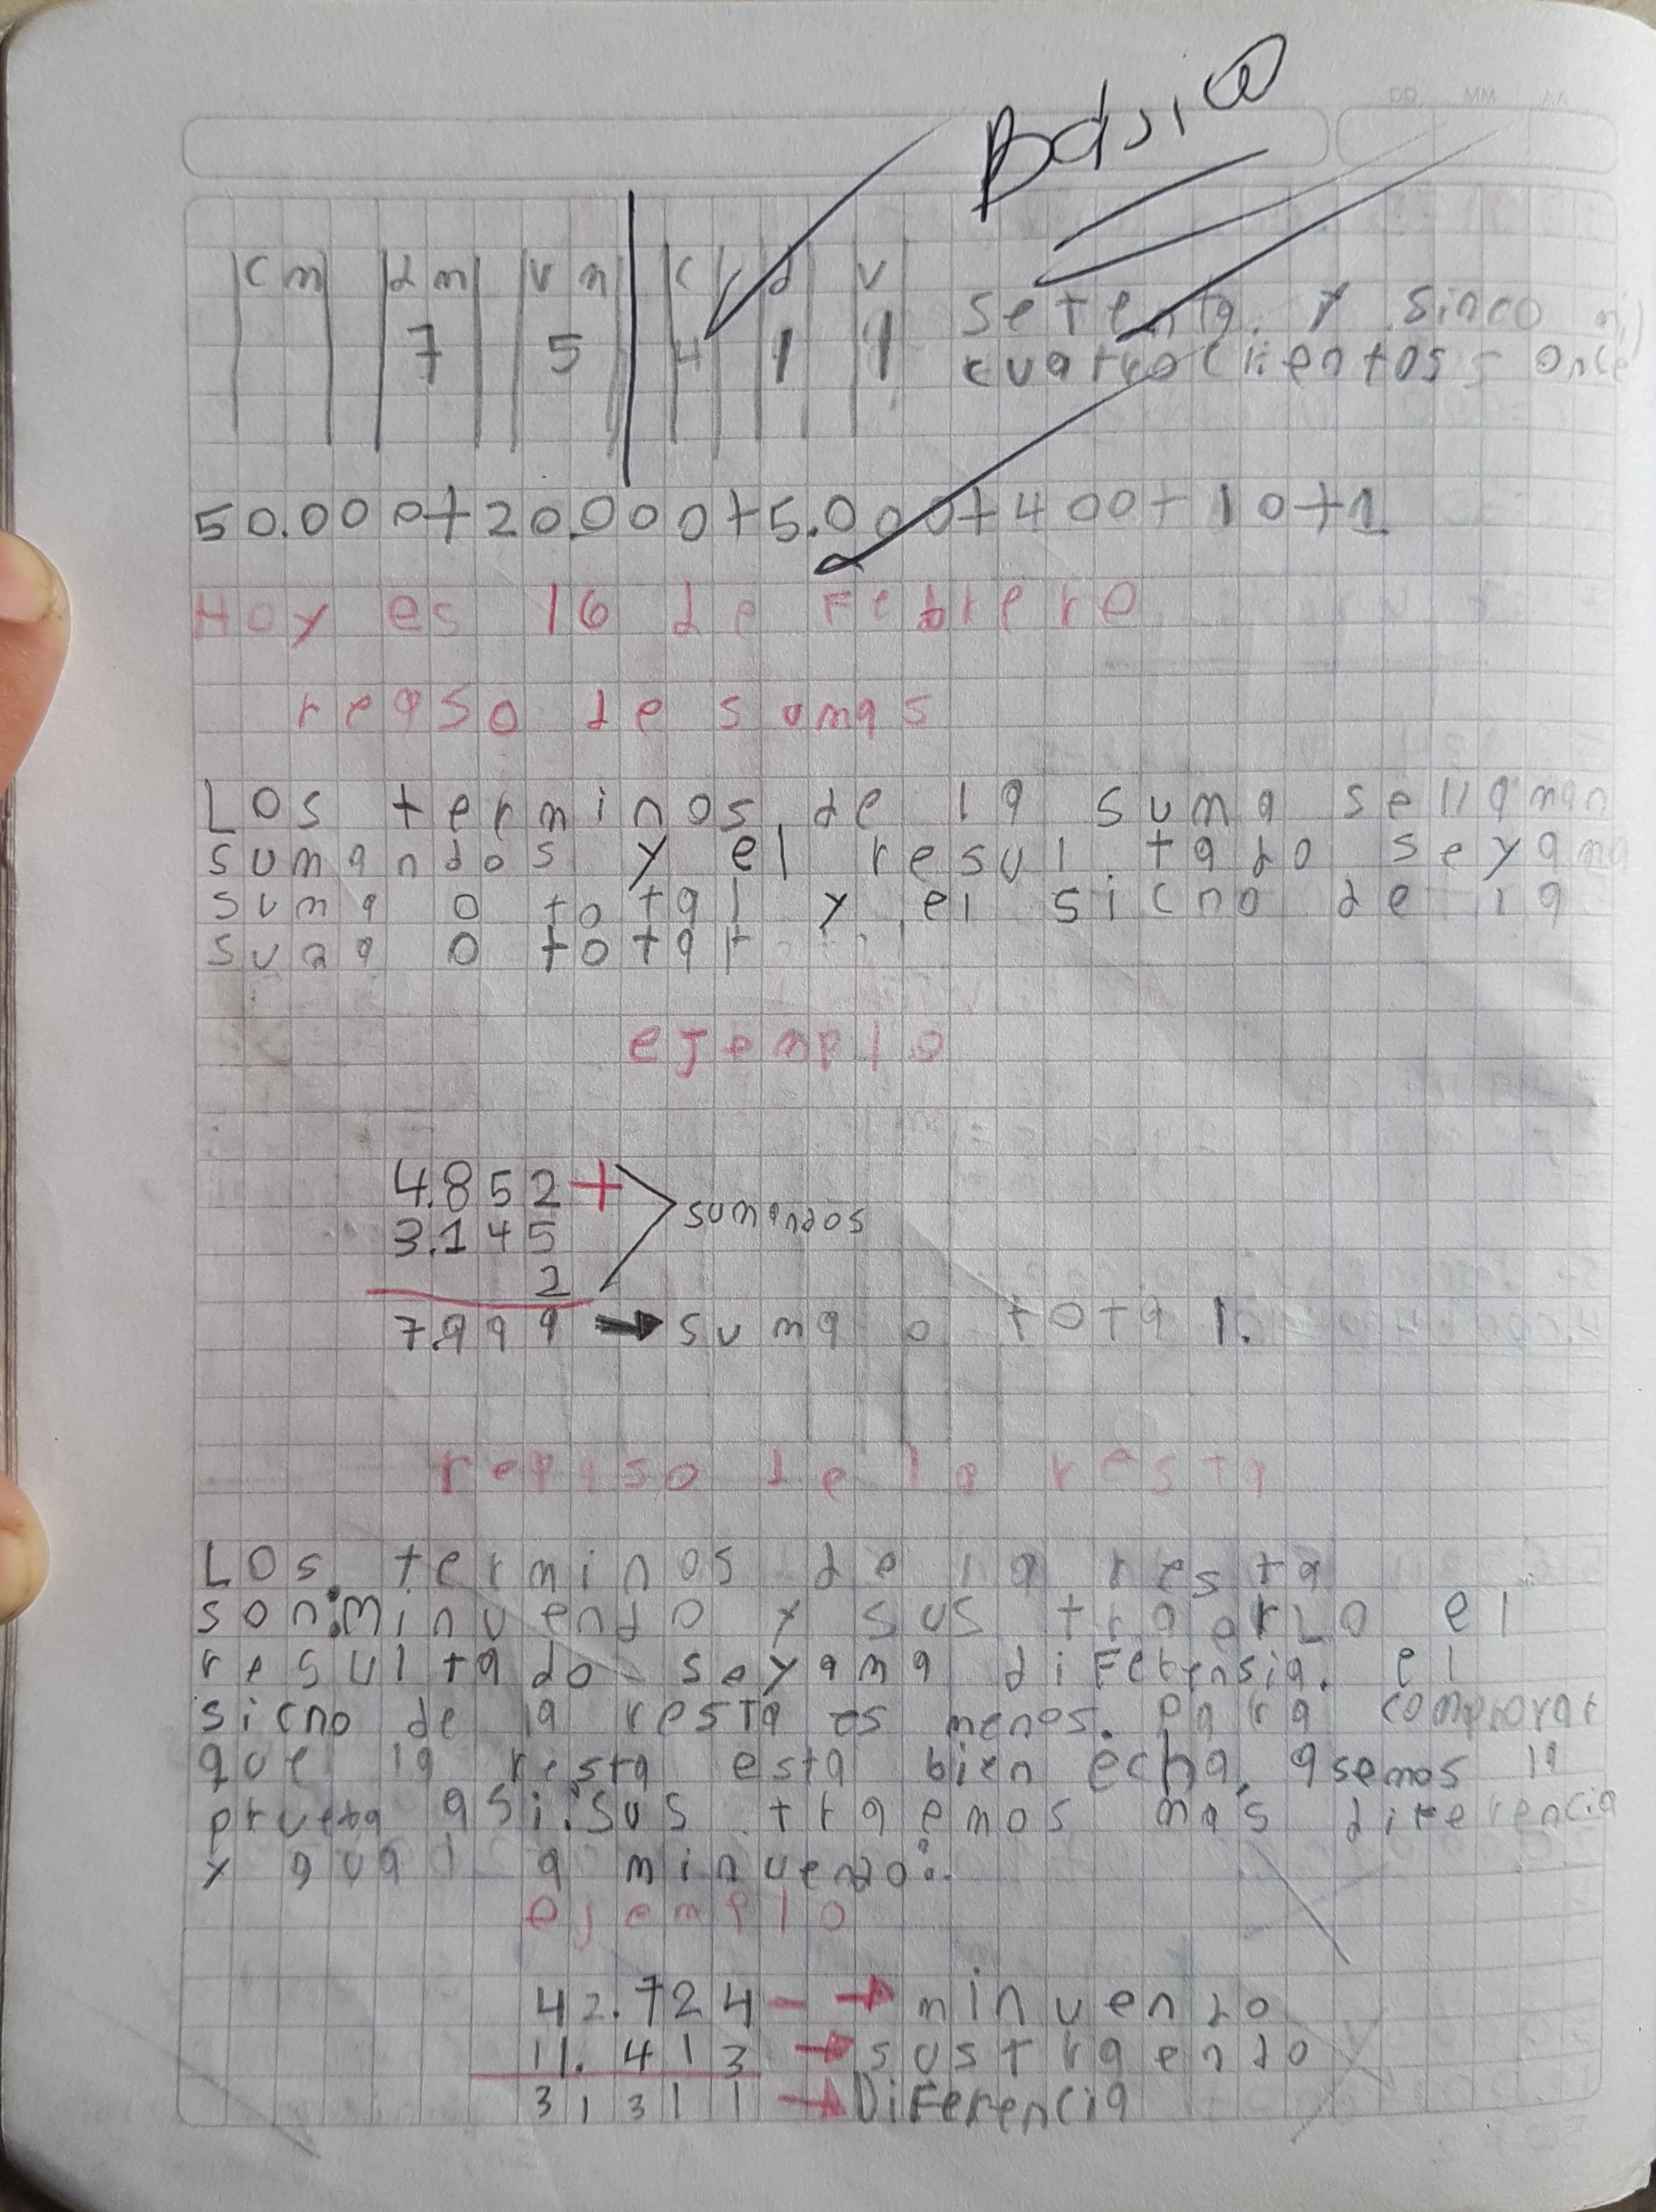 Básico
DD MM AA
cm dm um c d u
7 5 4 1 1
setenta y sinco mil
cuatrocientos once
50.000+20.000+5.000+400+10+1
Hoy es 16 de Febrero
repaso de sumas
Los terminos de la suma sellaman
sumandos y el resultado seyama
suma o total y el sicno de la
suma o total
ejemplo
4.852 +
3.145 sumandos
2
7.999 → suma o total.
repaso de la resta
Los terminos de la resta
son: minuendo y sus el
resultado seyama difetensia. el
sicno de la resta es menos. para comprovar
que la resta esta bien echa, asemos la
prueba asi: sus traemos mas diferencia
y gual a minuendo:.
ejemplo
42.724 - → minuendo
11.413 → sustraendo
31311 → Diferencia